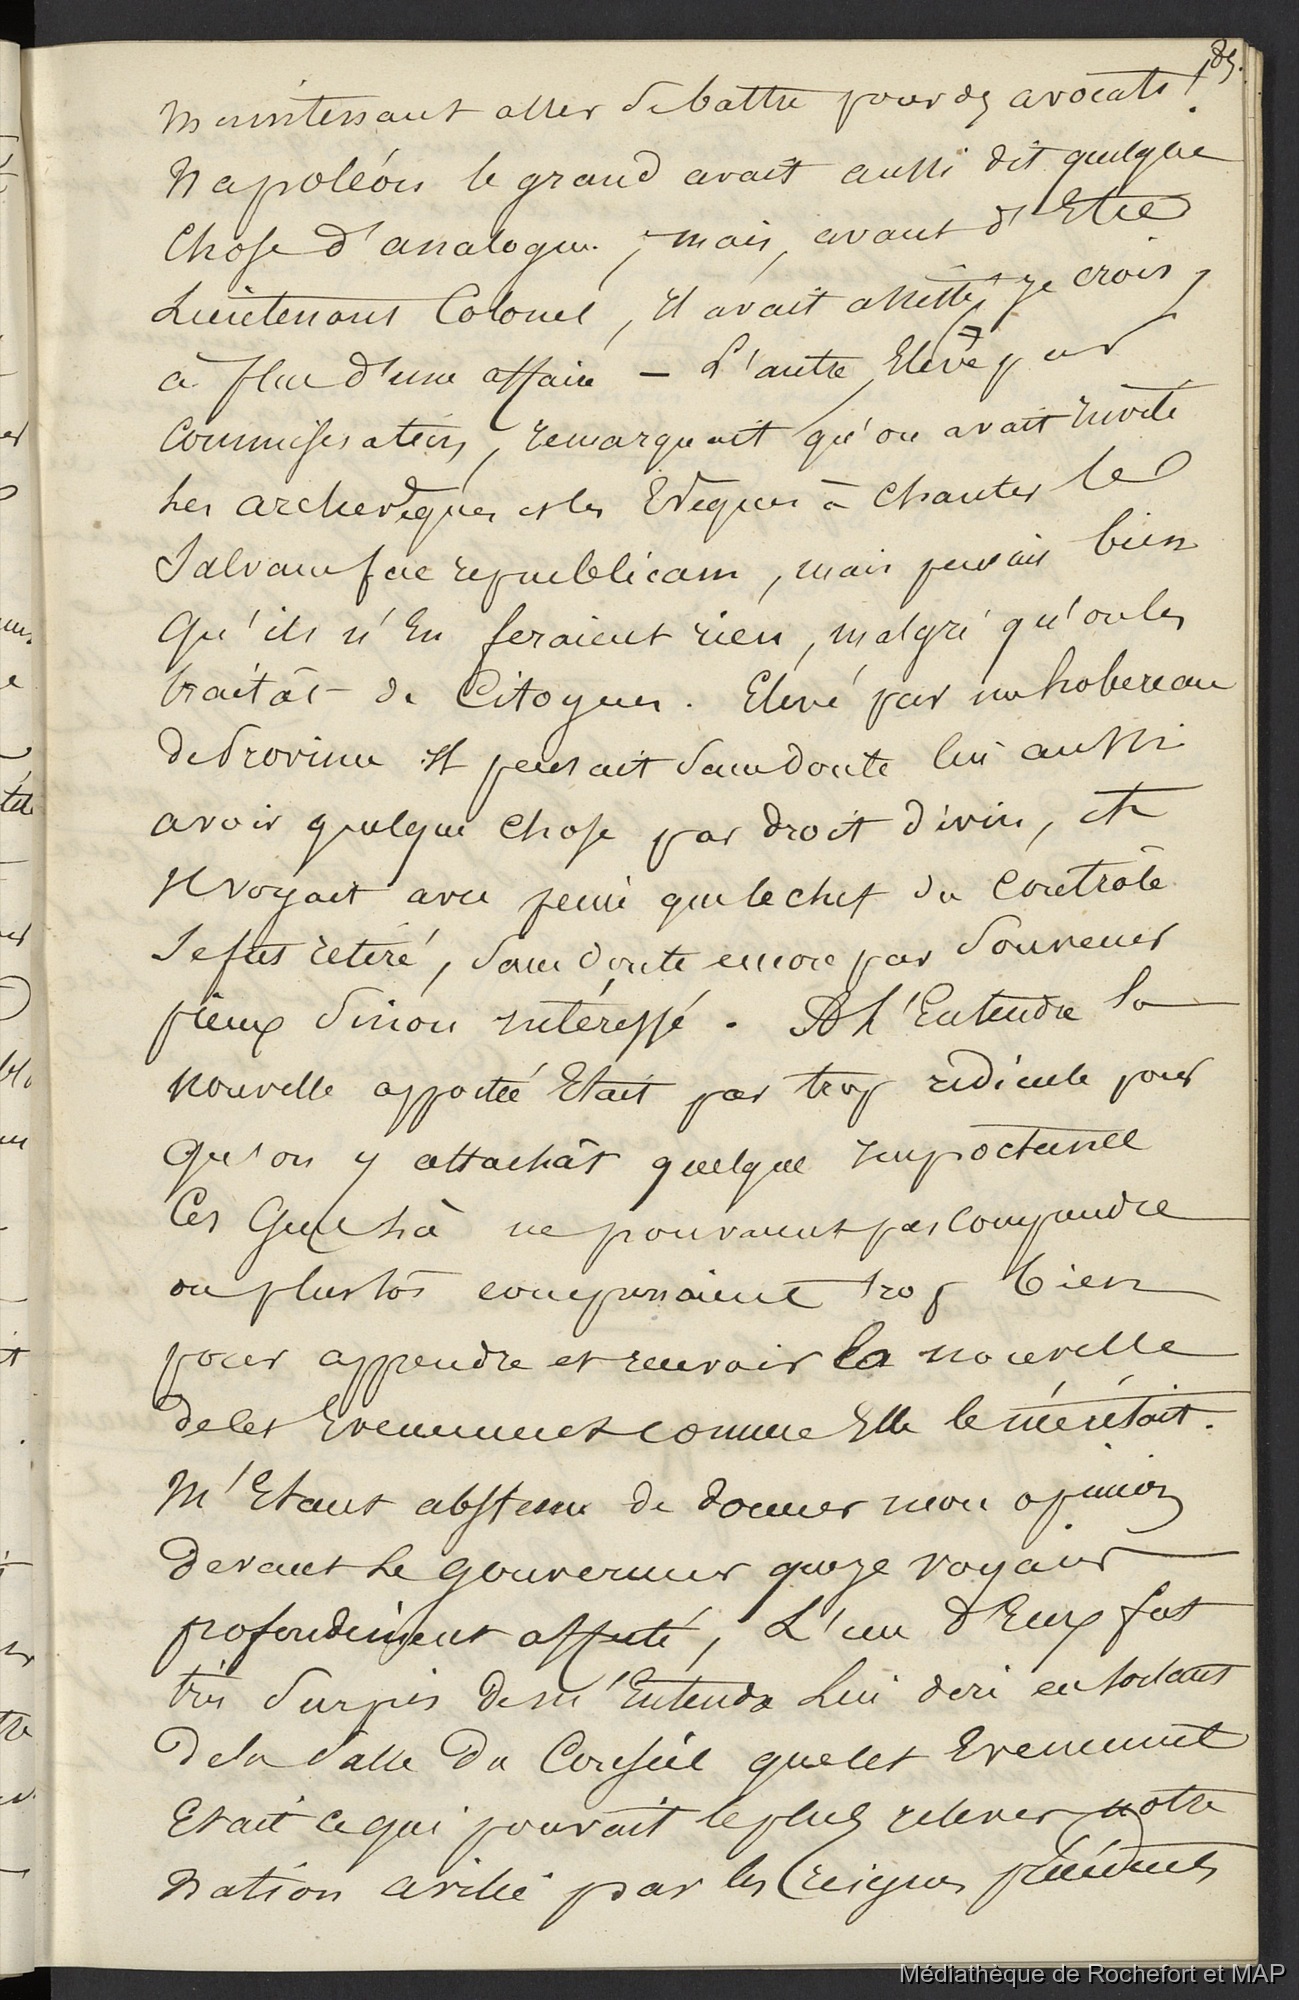 185.
Maintenant aller se battre pour des avocats !
Napoléon le grand avait aussi dit quelque
chose d'analogue ; mais, avant d'Etre
Lieutenant Colonel, il avait assisté, je crois,
à plus d'une affaire — L'autre, Elevé par
Commiseration, remarquait qu'on avait invité
les archevêques et les Evêques à chanter le
Salvam fac republicam, mais pensait bien
qu'ils n'En feraient rien, malgré qu'on les
traitât de Citoyens. Elevé par un hobereau
de Province il pensait sans doute lui aussi
avoir quelque chose par droit divin, et
il voyait avec peine que le chef du Contrôle
se fut retiré, sans doute encore par Souvenir
pieux sinon intéressé. A l'Entendre la
nouvelle apportée Etait par trop ridicule pour
qu'on y attachât quelque importance
Ces Gens là ne pouvaient pas comprendre
ou plustôt comprenaient trop bien
pour apprendre et recevoir la nouvelle
de cet Evenement comme Elle le méritait.
M'Etant abstenu de donner mon opinion
devant le gouverneur que je voyais
profondément affecté, L'un d'Eux fut
très surpris de m'Entendre lui dire en sortant
de la salle du Conseil que cet Evenement
Etait ce qui pouvait le plus relever notre
nation avilie par les règnes précédents
Médiathèque de Rochefort et MAP